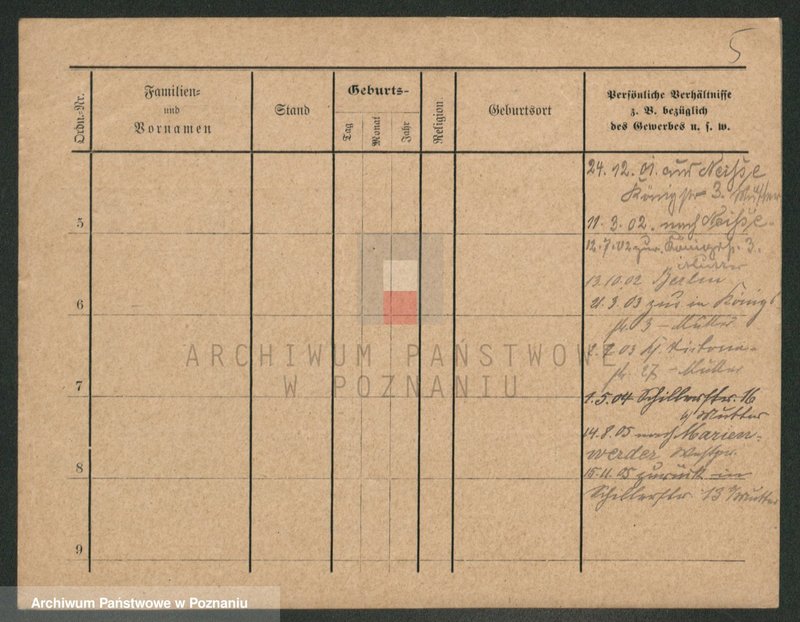 5
Ordn.-Nr.
Familien-
und
Vornamen
Stand
Geburts-
Tag
Monat
Jahr
Religion
Geburtsort
Persönliche Verhältnisse
z. B. bezüglich
des Gewerbes u. s. w.
24. 12. 01. aus Neisse
Königstr 3. Mutter
5
11. 3. 02. nach Neisse
12. 7. 02 zur. Königstr. 3.
Mutter
13.10.02 Berlin
6
21. 3. 03 zur. in Königs
str. 3 - Mutter
7. 03 Victoria-
str. 27 - Mutter
7
1. 5. 04 Schillerstr. 16
Mutter
14. 8. 05 nach Marien-
werder Westpr.
8
15. 11. 05 zurück in
Schillerstr 13 Mutter
9
ARCHIWUM PAŃSTWOWE
W POZNANIU
Archiwum Państwowe w Poznaniu